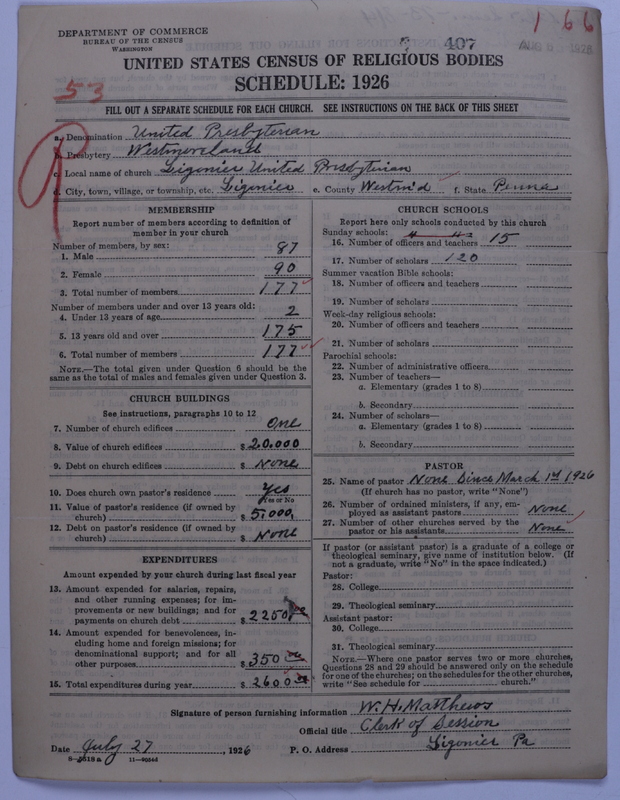 166
DEPARTMENT OF COMMERCE
BUREAU OF THE CENSUS
WASHINGTON
407
AUG 1926
UNITED STATES CENSUS OF RELIGIOUS BODIES
SCHEDULE: 1926
53
FILL OUT A SEPARATE SCHEDULE FOR EACH CHURCH. SEE INSTRUCTIONS ON THE BACK OF THIS SHEET
a. Denomination United Presbyterian
b. Presbytery Westmoreland
c. Local name of church Ligonier United Presbyterian
d. City, town, village, or township, etc. Ligonier e. County Westm'd f. State Penna
MEMBERSHIP
Report number of members according to definition of
member in your church
Number of members, by sex:
1. Male 87
2. Female 90
3. Total number of members 177
Number of members under and over 13 years old:
4. Under 13 years of age 2
5. 13 years old and over 175
6. Total number of members 177
NOTE.—The total given under Question 6 should be
same as the total of males and females given under Question 3.
CHURCH BUILDINGS
See instructions, paragraphs 10 to 12
7. Number of church edifices One
8. Value of church edifices $ 20.000
9. Debt on church edifices $ None
10. Does church own pastor's residence Yes
Yes or No
11. Value of pastor's residence (if owned by
church) $ 5.000
12. Debt on pastor's residence (if owned by
church) $ None
EXPENDITURES
Amount expended by your church during last fiscal year
13. Amount expended for salaries, repairs,
and other running expenses; for im-
provements or new buildings; and for
payments on church debt $ 2250.00
14. Amount expended for benevolences, in-
cluding home and foreign missions; for
denominational support; and for all
other purposes $ 350 00
15. Total expenditures during year $ 2600.00
CHURCH SCHOOLS
Report here only schools conducted by this church
Sunday schools:
16. Number of officers and teachers 15
17. Number of scholars 120
Summer vacation Bible schools:
18. Number of officers and teachers
19. Number of scholars
Week-day religious schools:
20. Number of officers and teachers
21. Number of scholars
Parochial schools:
22. Number of administrative officers
23. Number of teachers—
a. Elementary (grades 1 to 8)
b. Secondary
24. Number of scholars—
a. Elementary (grades 1 to 8)
b. Secondary
PASTOR
25. Name of pastor None Since March 1st 1926
(If church has no pastor, write "None")
26. Number of ordained ministers, if any, em-
ployed as assistant pastors None
27. Number of other churches served by the
pastor or his assistants None
If pastor (or assistant pastor) is a graduate of a college or
theological seminary, give name of institution below. (If
not a graduate, write "No" in the space indicated.)
Pastor:
28. College
29. Theological seminary
Assistant pastor:
30. College
31. Theological seminary
NOTE.—Where one pastor serves two or more churches,
Questions 28 and 29 should be answered only on the schedule
for one of the churches; on the schedules for the other churches,
write "See schedule for church."
Signature of person furnishing information W. H. Matthews
Official title Clerk of Session
Date July 27, 1926 P. O. Address Ligonier Pa